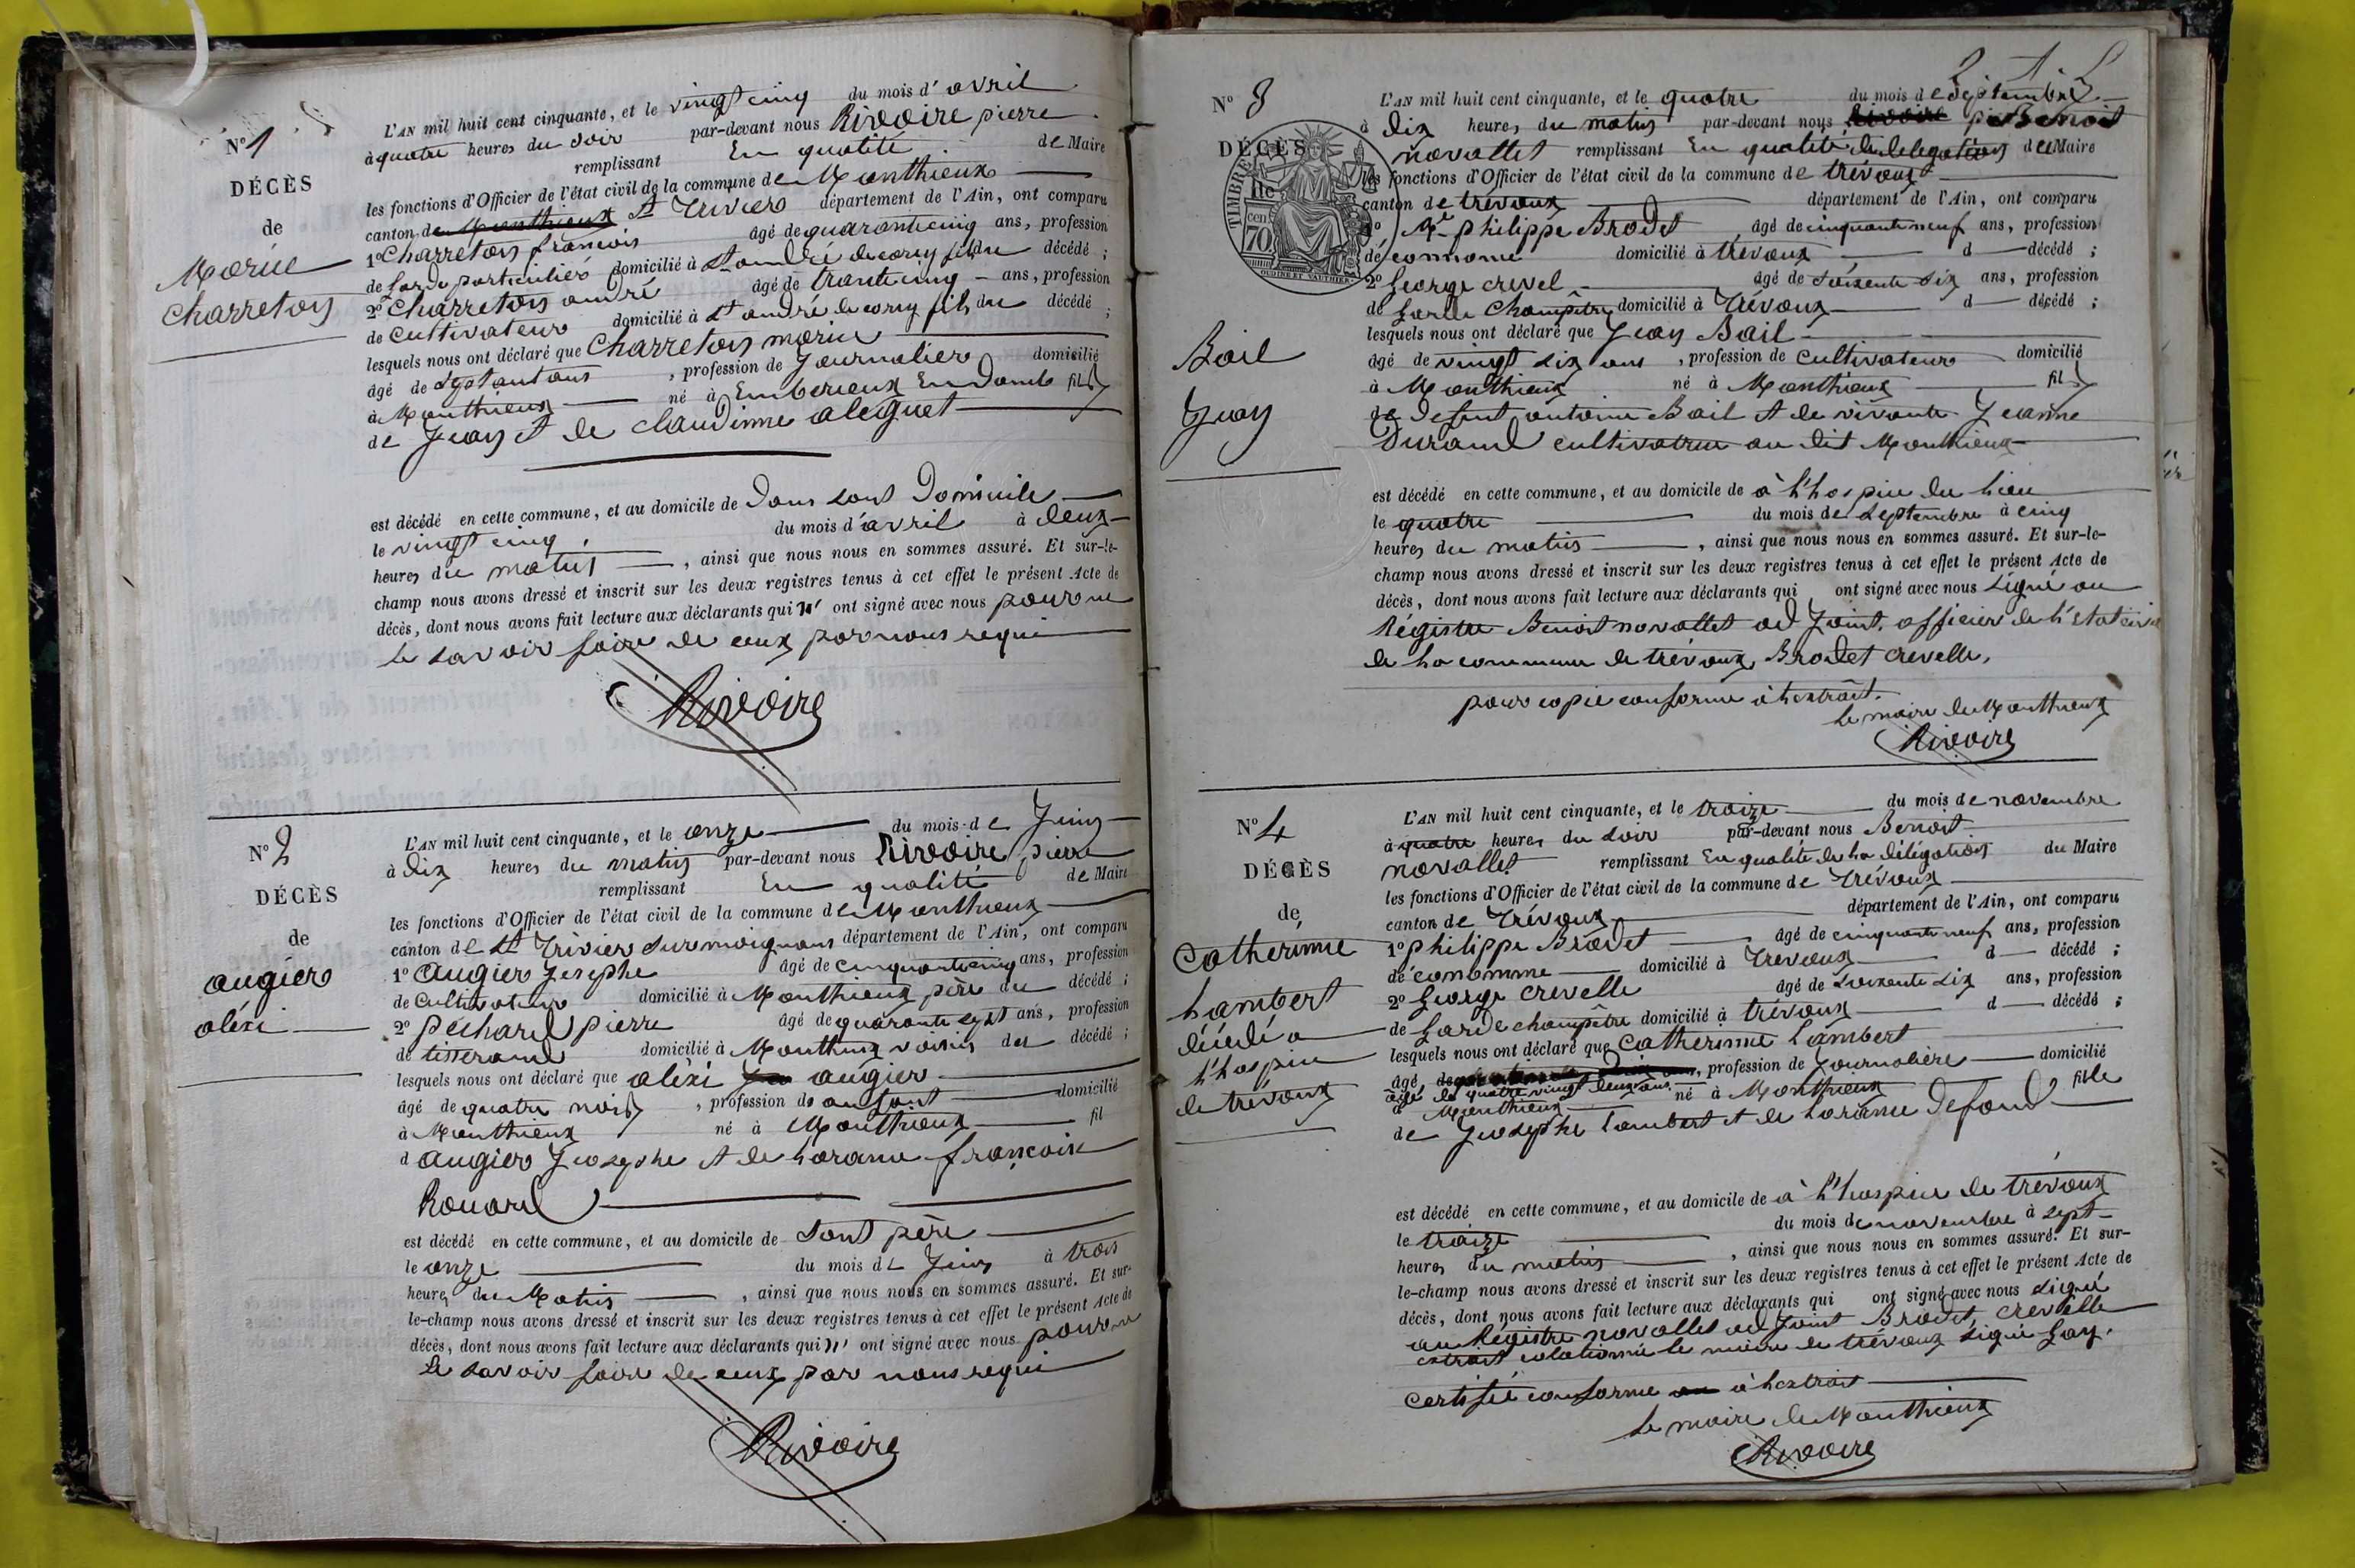 N° 1
DÉCÈS
de
Morice
Charreton
L'AN mil huit cent cinquante, et le vingt cinq du mois d'avril
à quatre heures du soir par-devant nous Rivoire pierre
remplissant En qualité de Maire
les fonctions d'Officier de l'état civil de la commune de Monthieux
canton de Monthieux St Trivier département de l'Ain, ont comparu
1° Charreton francois âgé de quarante cinq ans, profession
de Garde particulier domicilié à St andré de corcy fils du décédé ;
2° Charreton andré âgé de trente cinq ans, profession
de Cultivateur domicilié à St andré de corcy fils du décédé ;
lesquels nous ont déclaré que Charreton morice
âgé de Septant ans, profession de Journalier domicilié
à Monthieux né à Emberieux En Domb fils
de Jean et de Claudinne aleguet
est décédé en cette commune, et au domicile de Dans sont Domicile
le vingt cinq du mois d'avril à deux
heures du matin, ainsi que nous nous en sommes assuré. Et sur-le-
champ nous avons dressé et inscrit sur les deux registres tenus à cet effet le présent Acte de
décès, dont nous avons fait lecture aux déclarants qui n' ont signé avec nous pour ne
le savoir faire de ceux par nous requi
Rivoire
N° 2
DÉCÈS
de
augier
aléxi
L'AN mil huit cent cinquante, et le onze du mois de Juin
à dix heures du matin par-devant nous Rivoire pierre
remplissant En qualité de Maire
les fonctions d'Officier de l'état civil de la commune de Monthieux
canton de St Trivier sur moignans département de l'Ain, ont comparu
1° augier Josephe âgé de cinquante cinq ans, profession
de Cultivateur domicilié à Monthieux père du décédé ;
2° péchard pierre âgé de quarante sept ans, profession
de tisserand domicilié à Monthieux voisin du décédé ;
lesquels nous ont déclaré que aléxi augier
âgé de quatre mois, profession de anfant domicilié
à Monthieux né à Monthieux fil
d augier Josephe et de Laranie françoise
Rouard
est décédé en cette commune, et au domicile de Sont père
le onze du mois de Juin à trois
heures du Matin, ainsi que nous nous en sommes assuré. Et sur-
le-champ nous avons dressé et inscrit sur les deux registres tenus à cet effet le présent Acte de
décès, dont nous avons fait lecture aux déclarants qui n' ont signé avec nous pour ne
le savoir faire de ceux par nous requi
Rivoire
N° 3
DÉCÈS
TIMBRE
70 cen
OUDINE ET VAUTHIER
Bail
Jean
L'AN mil huit cent cinquante, et le quatre du mois de Septembre
à dix heures du matin par-devant nous Rivoire Benoit
novallet remplissant En qualité de délégation de Maire
les fonctions d'Officier de l'état civil de la commune de trévoux
canton de trévoux département de l'Ain, ont comparu
1° Me philippe Brodet âgé de cinquante neuf ans, profession
déconnome domicilié à trévoux d décédé ;
2° George crevel âgé de Soixente dix ans, profession
de Garde Champêtre domicilié à Trévoux d décédé ;
lesquels nous ont déclaré que Jean Bail
âgé de vingt dix ans, profession de Cultivateur domicilié
à Monthieux né à Monthieux fils
de defunt antoine Bail et de vivante Jeanne
Durand cultivatrice au dit Monthieux
est décédé en cette commune, et au domicile de à l'hospice du lieu
le quatre du mois de Septembre à cinq
heures du matin, ainsi que nous nous en sommes assuré. Et sur-le-
champ nous avons dressé et inscrit sur les deux registres tenus à cet effet le présent Acte de
décès, dont nous avons fait lecture aux déclarants qui ont signé avec nous Signé au
Régistre Benoit novallet ad Joint. officier de l'état civil
de la commune de trévoux, Brodet crevelle,
pour copie conforme à l'extrait.
Le maire de Monthieux
Rivoire
N° 4
DÉCÈS
de
Catherinne
Lambert
décédé a
l'hospice
de trévoux
L'AN mil huit cent cinquante, et le traize du mois de novembre
à quatre heures du soir par-devant nous Benoit
novallet remplissant En qualité de la délégation du Maire
les fonctions d'Officier de l'état civil de la commune de Trévoux
canton de Trévoux département de l'Ain, ont comparu
1° philippe Brodet âgé de cinquante neuf ans, profession
déconomme domicilié à Trévoux d décédé ;
2° George crevelle âgé de soixente dix ans, profession
de Garde champêtre domicilié à trévoux d décédé ;
lesquels nous ont déclaré que Catherinne Lambert
âgé de, profession de Journalière domicilié
agé de quatre vingt deux ans
à Monthieux né à Monthieux fille
de Josephe Lambert et de Laranie Defond
est décédé en cette commune, et au domicile de à l'hospice de trévoux
le traize du mois de novembre à sept
heures du matin, ainsi que nous nous en sommes assuré. Et sur-
le-champ nous avons dressé et inscrit sur les deux registres tenus à cet effet le présent Acte de
décès, dont nous avons fait lecture aux déclarants qui ont signé avec nous signé
au Régistre novallet ad Joint Brodet, crevelle
extrait colationné le maire de trévoux signé Gay.
Certifié conforme à l'extrait
Le maire de Monthieux
Rivoire